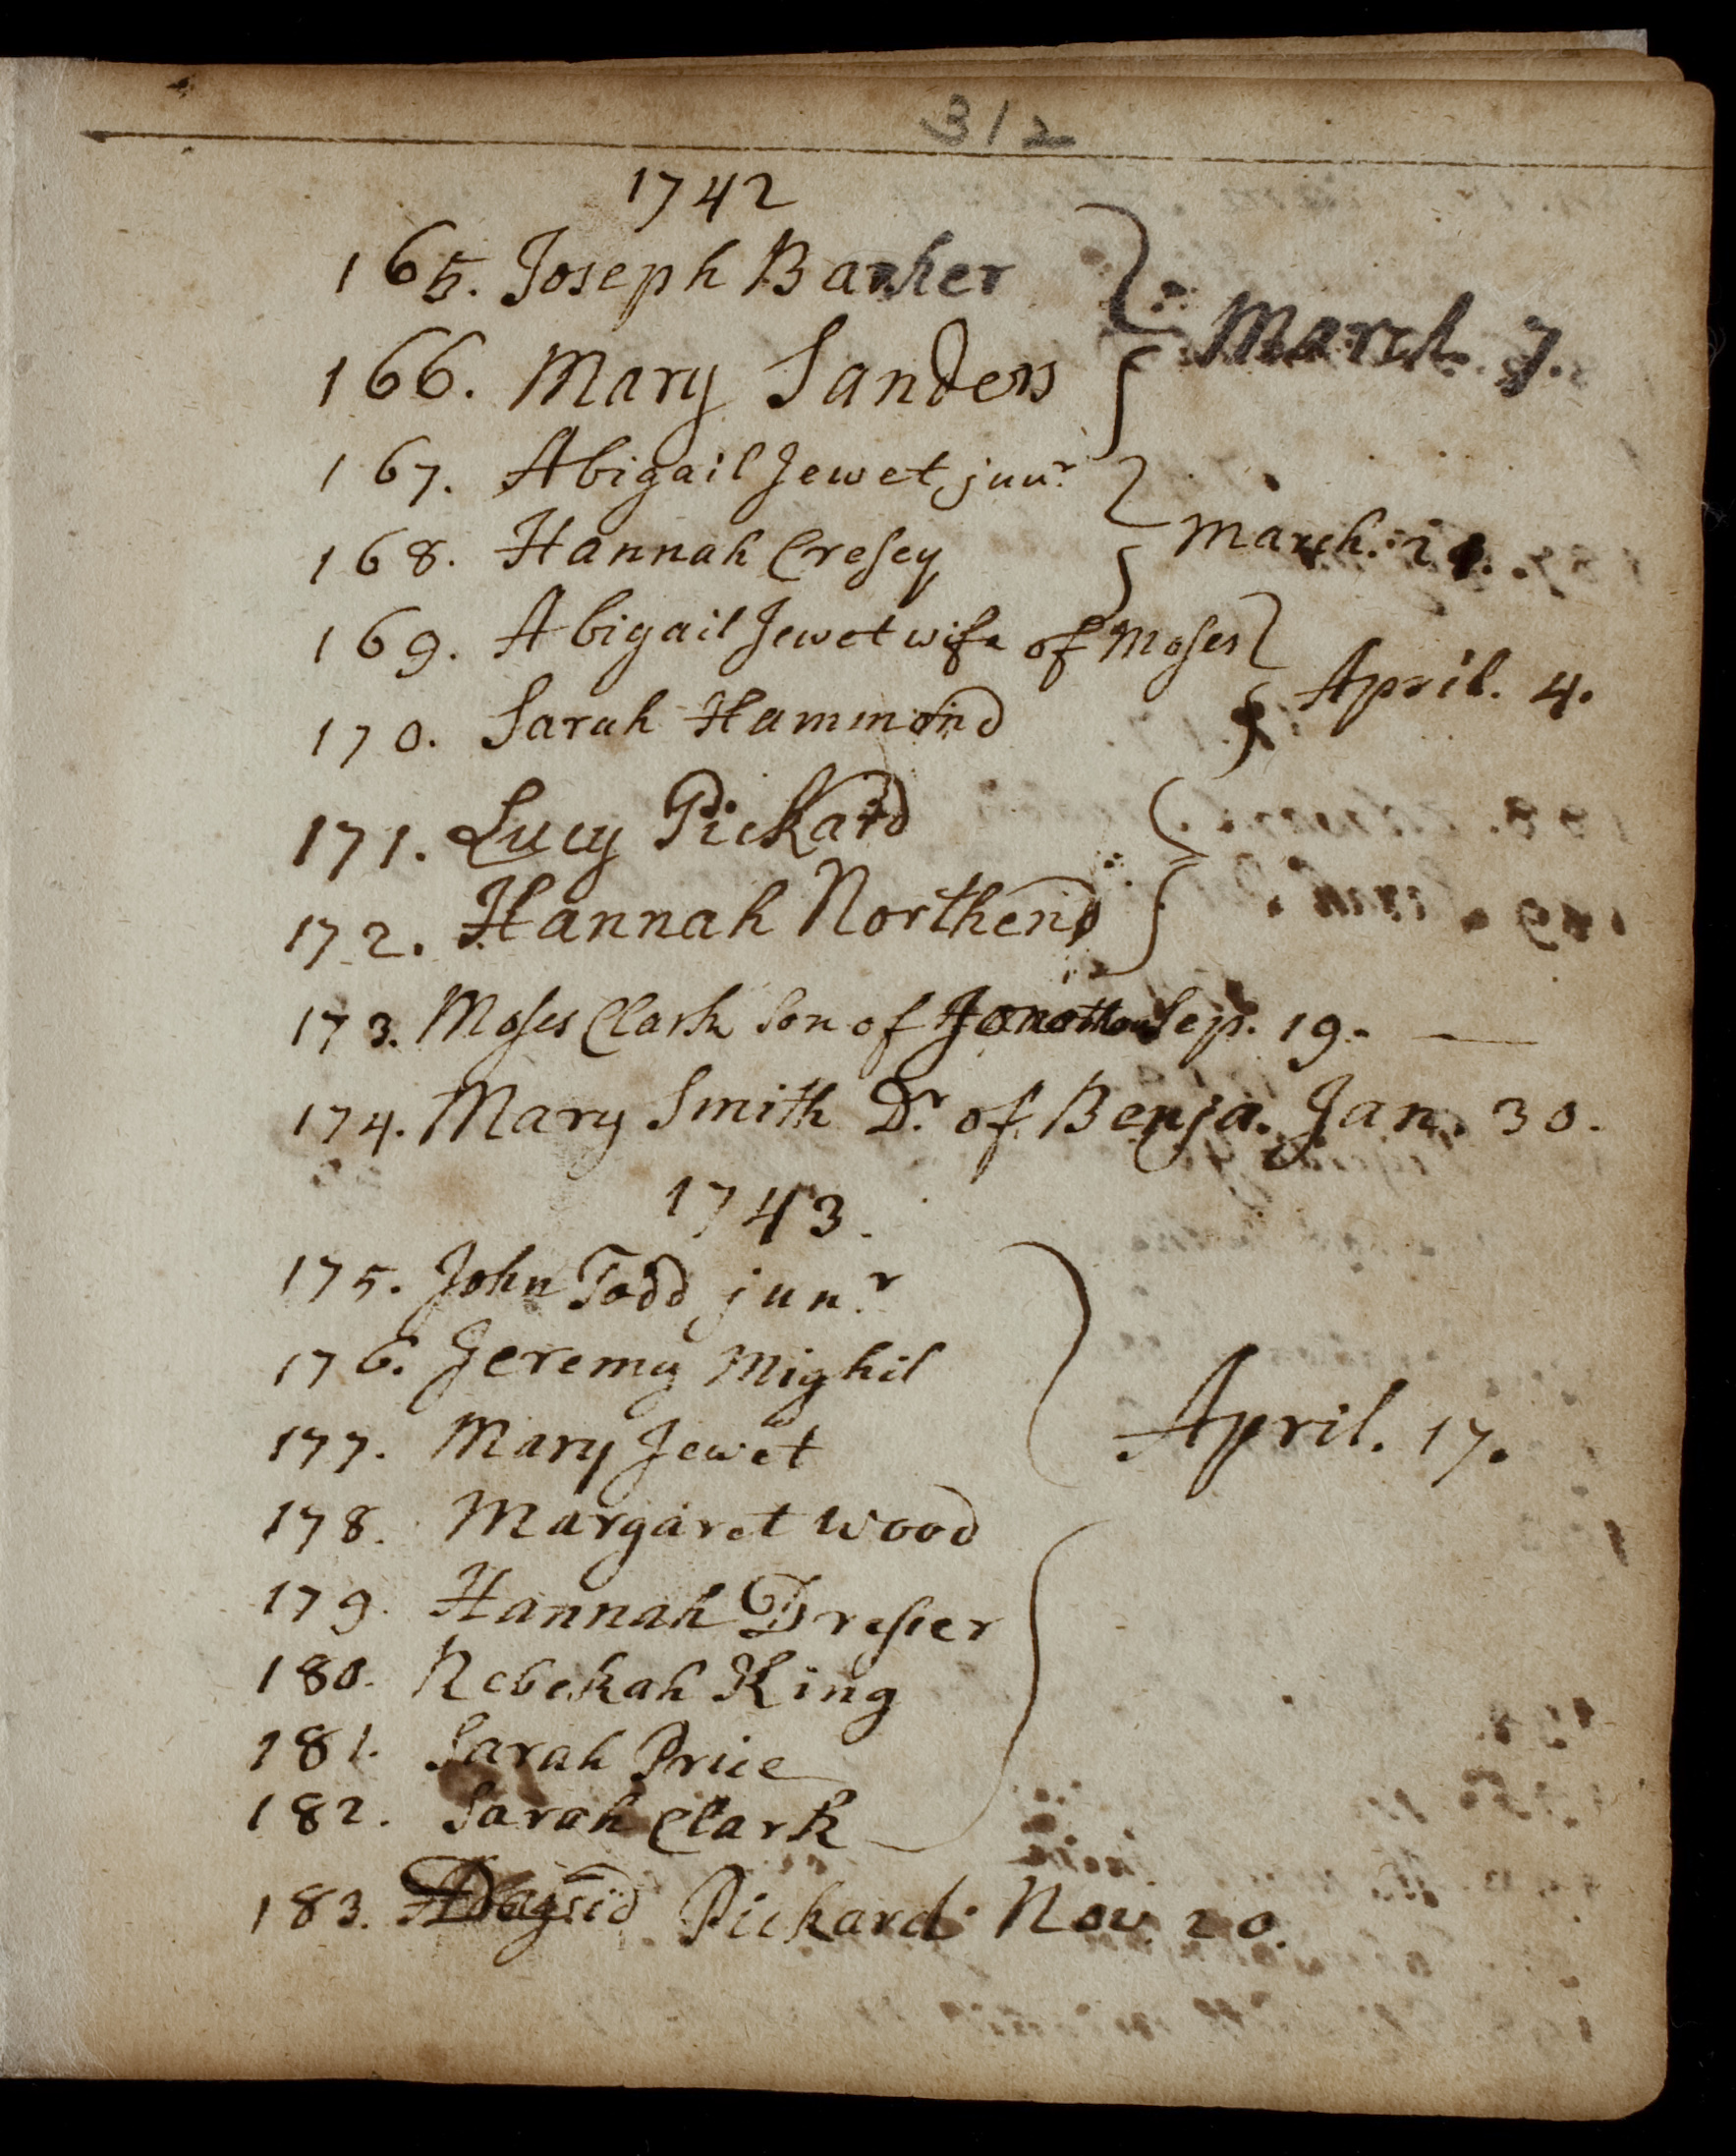 312
1742
165. Joseph Barker
166. Mary Sanders
March 7.
167. Abigail Jewet junr
168. Hannah Cresey
March. 21.
169. Abigail Jewet wife of Moses
170. Sarah Hammond
April. 4.
171. Lucy Pickard
172. Hannah Northend
173. Moses Clark Son of Jonathan Sep. 19.
174. Mary Smith Dr. of Benja. Jan. 30.
1743.
175. John Todd junr
176. Jeremy Mighil
177. Mary Jewet
April. 17.
178. Margaret Wood
179. Hannah Dresser
180. Rebekah King
181. Sarah Price
182. Sarah Clark
183. Pickard. Nov. 20.